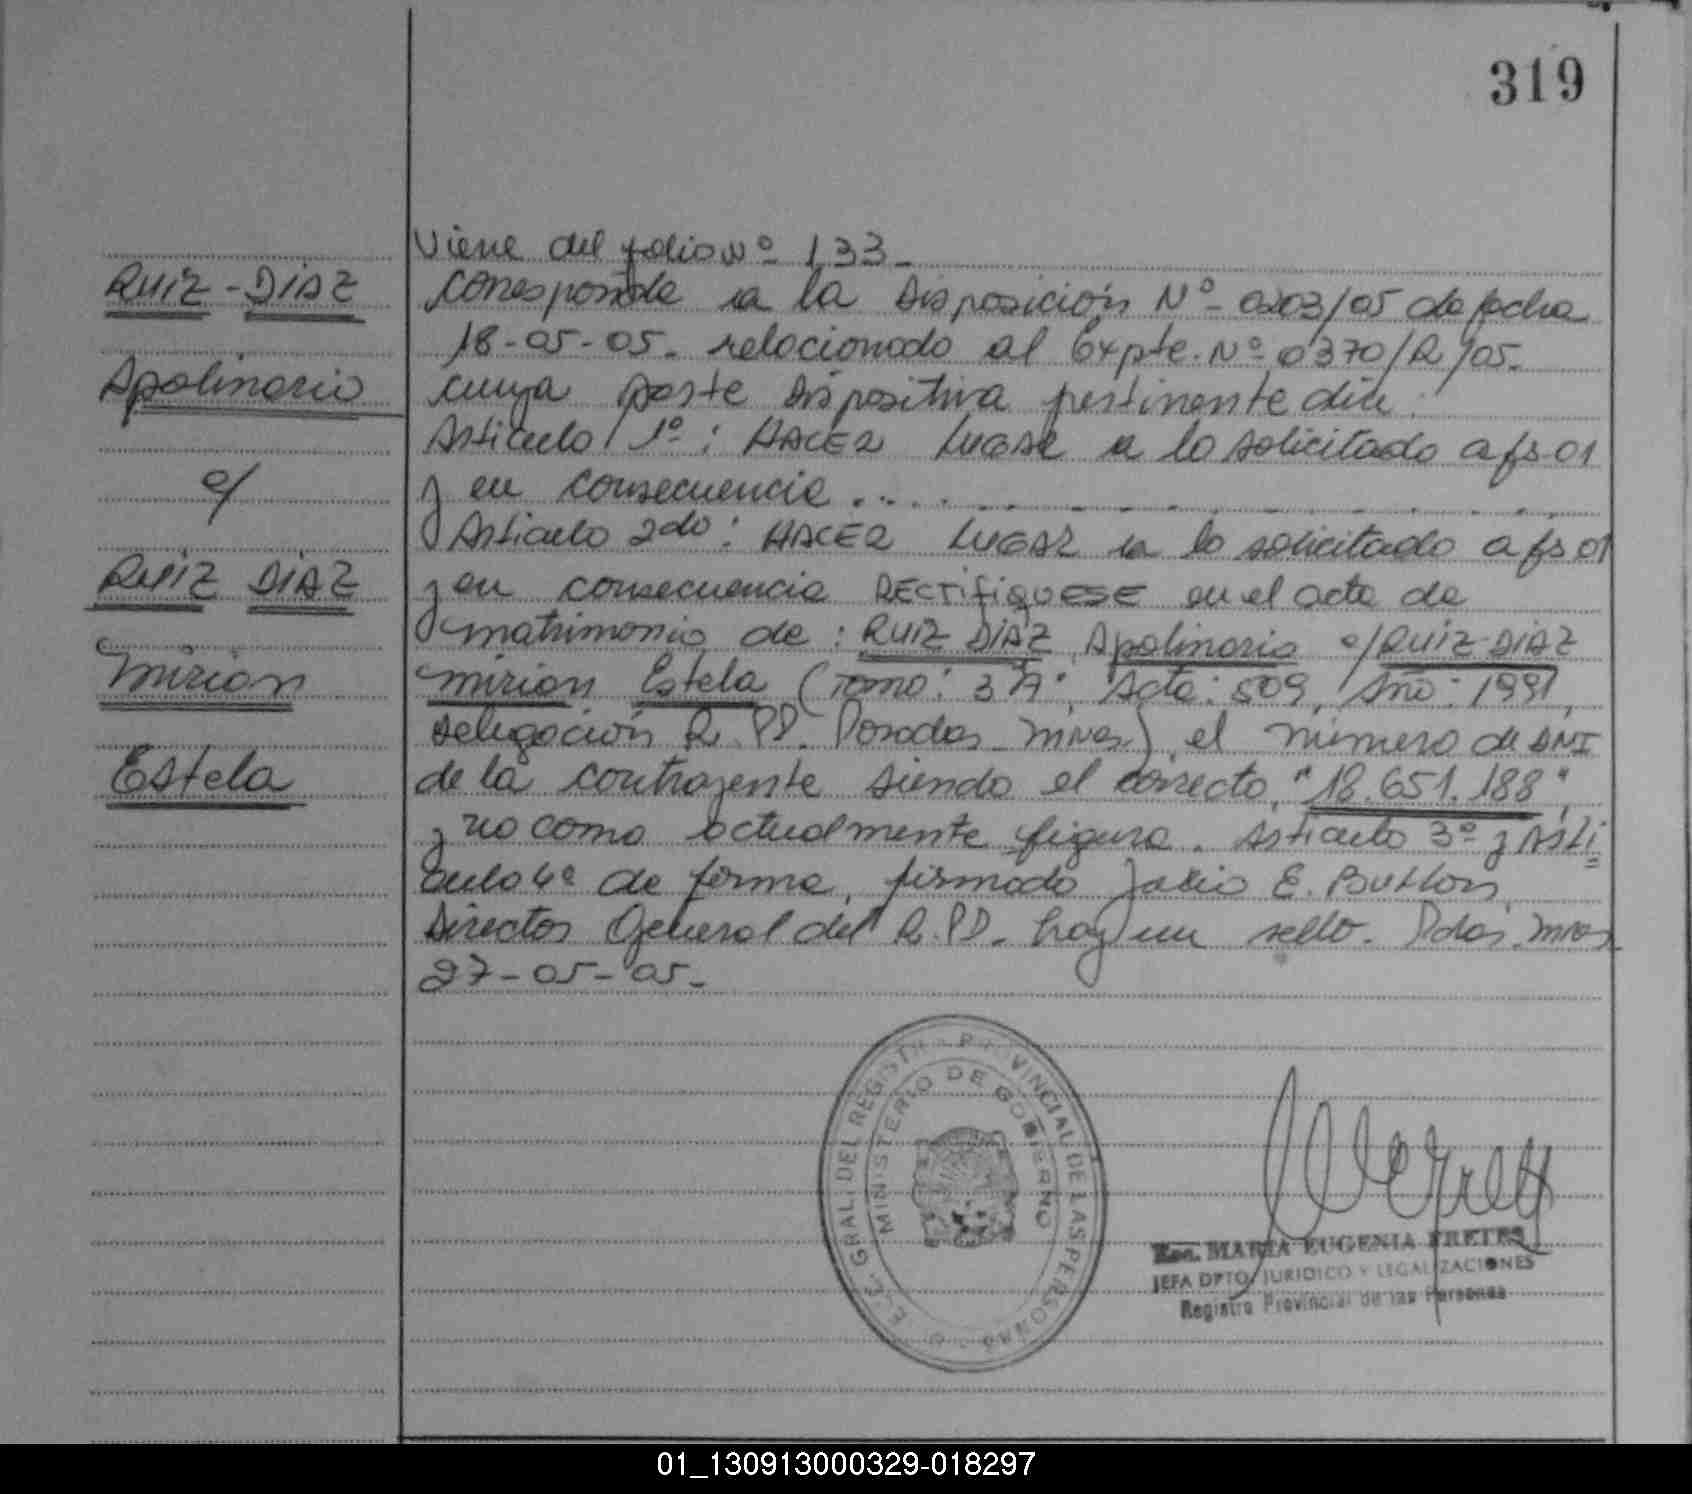 319
RUIZ - DIAZ
Apolinario
c/
RUIZ DIAZ
Mirian
Estela
Viene del folio Nº 133 -
corresponde a la Disposición Nº 0203/05 de fecha
18-05-05. relacionado al Expte. Nº 0370/R/05.
cuya parte Dispositiva pertinente dice:
Articulo 1º: HACER LUGAR a lo solicitado a fs 01
y en consecuencia ....
Articulo 2do: HACER LUGAR a lo solicitado a fs 01
y en consecuencia RECTIFIQUESE en el acta de
matrimonio de: RUIZ DIAZ, Apolinario c/ RUIZ-DIAZ
Mirian Estela (Tomo: 3ºA; Acta: 509, Año: 1991,
Delegación R.PP. Posadas Mnes) el número de DNI
de la contrayente siendo el correcto, "18.651.188",
y no como actualmente figura. Articulo 3º y Arti=
culo 4º de forma, firmado E.
Director General del R.PP. hay un sello. Pdas. Mnes
27-05-05.-
GRAL. DEL REGISTRO PROVINCIAL DE LAS PERSONAS
MINISTERIO DE GOBIERNO
Esc. MARIA EUGENIA FRETES
JEFA DPTO. JURIDICO Y LEGALIZACIONES
Registro Provincial de las Personas
01_130913000329-018297